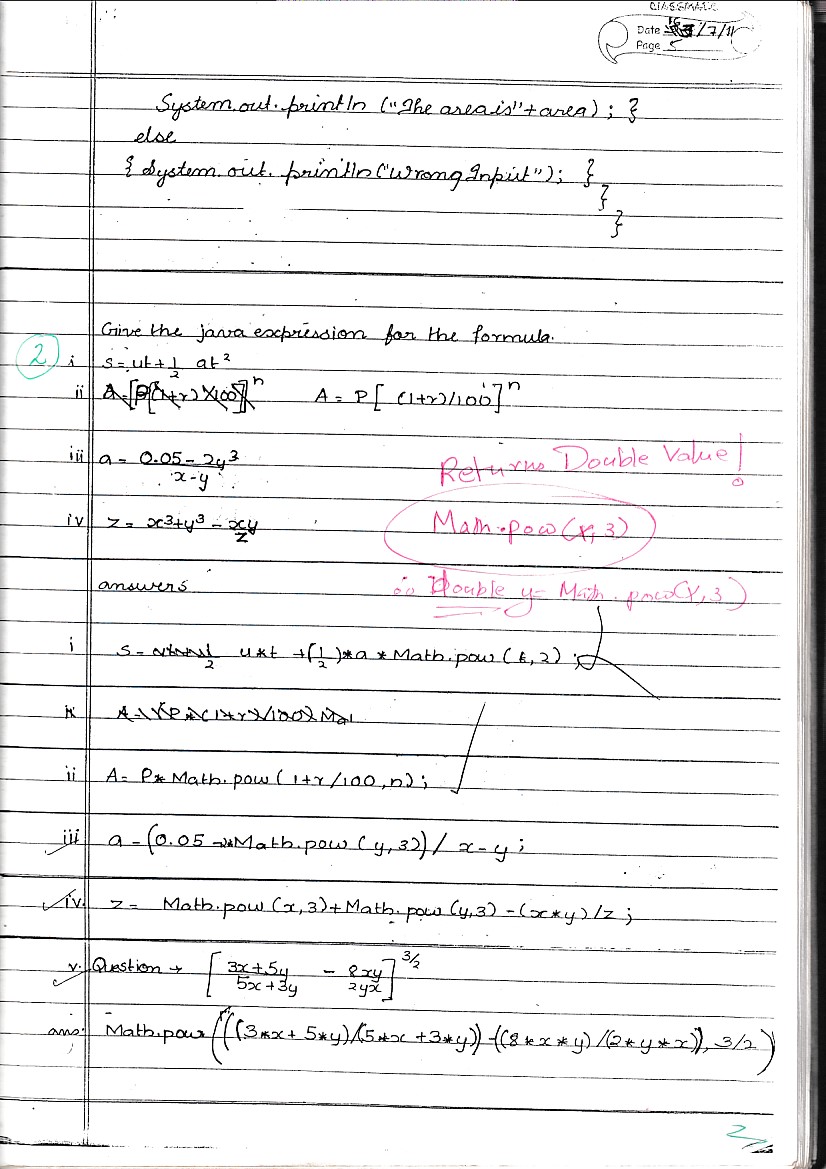 CLASSMATE
Date 16/7/11
Page 5
System.out.println ("The area is"+area) ; }
else
{ System.out.println("Wrong Input"); }
}
}
Give the java expression for the formula.
2
i s = ut + 1/2 at²
ii A = P [ (1+r)/100 ]ⁿ
iii a = 0.05 - 2y³ / x-y
Returns Double Value!
iv z = x³+y³ - xy/z
Math.pow(x,3)
answers
∴ Double y = Math.pow(x,3)
i s = u*t + (1/2)*a*Math.pow(t,2);
ii A = P* Math.pow(1+r/100,n);
iii a = (0.05 - 2*Math.pow(y,3))/ x-y;
iv. z = Math.pow(x,3)+Math.pow(y,3) -(x*y)/z;
v. Question → [ 3x+5y / 5x+3y - 8xy / 2yx ]^3/2
ans: Math.pow((((3*x + 5*y)/(5*x +3*y)) -((8*x*y)/(2*y*x)), 3/2)